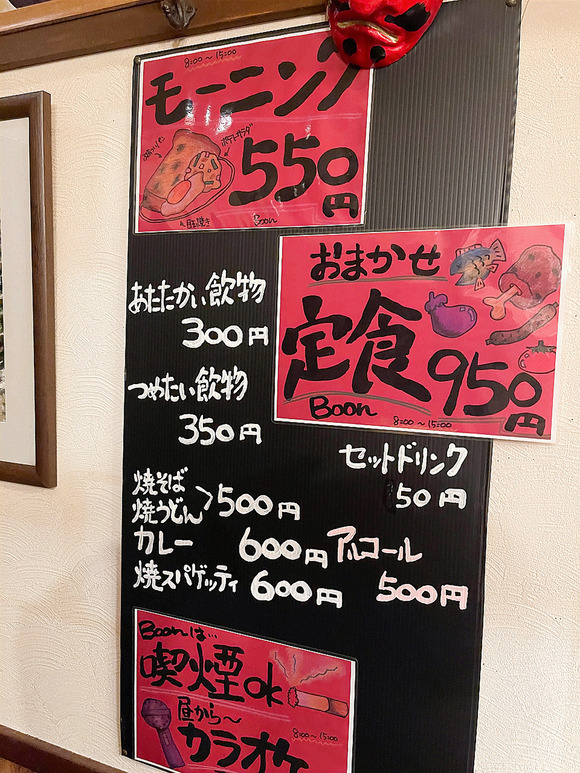 8:00〜15:00
モーニング
ポテトサラダ
550円
目玉焼き
Boon
おまかせ
定食
950円
Boon
8:00〜15:00
あたたかい飲物
300円
つめたい飲物
350円
セットドリンク
50円
焼そば
焼うどん > 500円
カレー 600円
アルコール
焼スパゲッティ 600円
500円
Boonは…
喫煙ok
昼から〜
8:00〜15:00
カラオケ